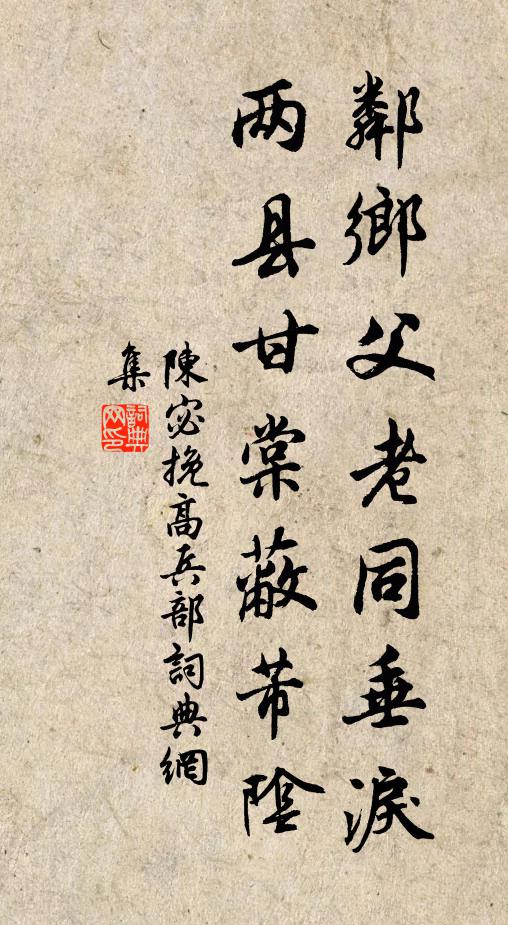 鄰鄉父老同垂淚
两县甘棠蔽芾陰
陳宓挽高兵部詞典網
集
詞典
网印